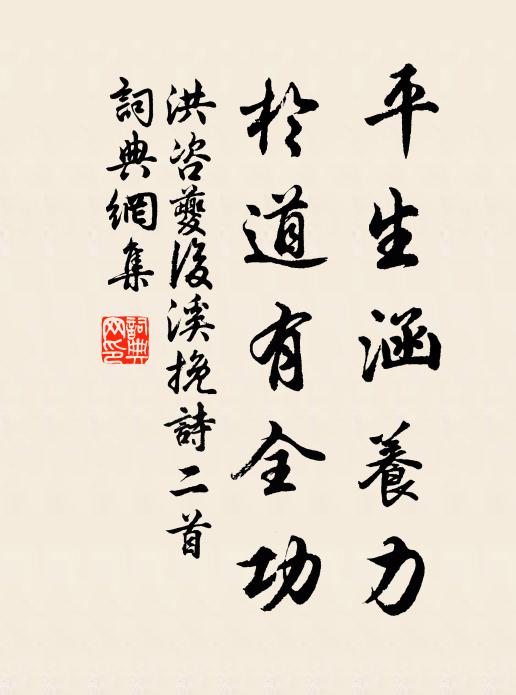 平生涵養力
於道有全功
洪咨夔後溪挽詩二首
詞典網集
詞典网印